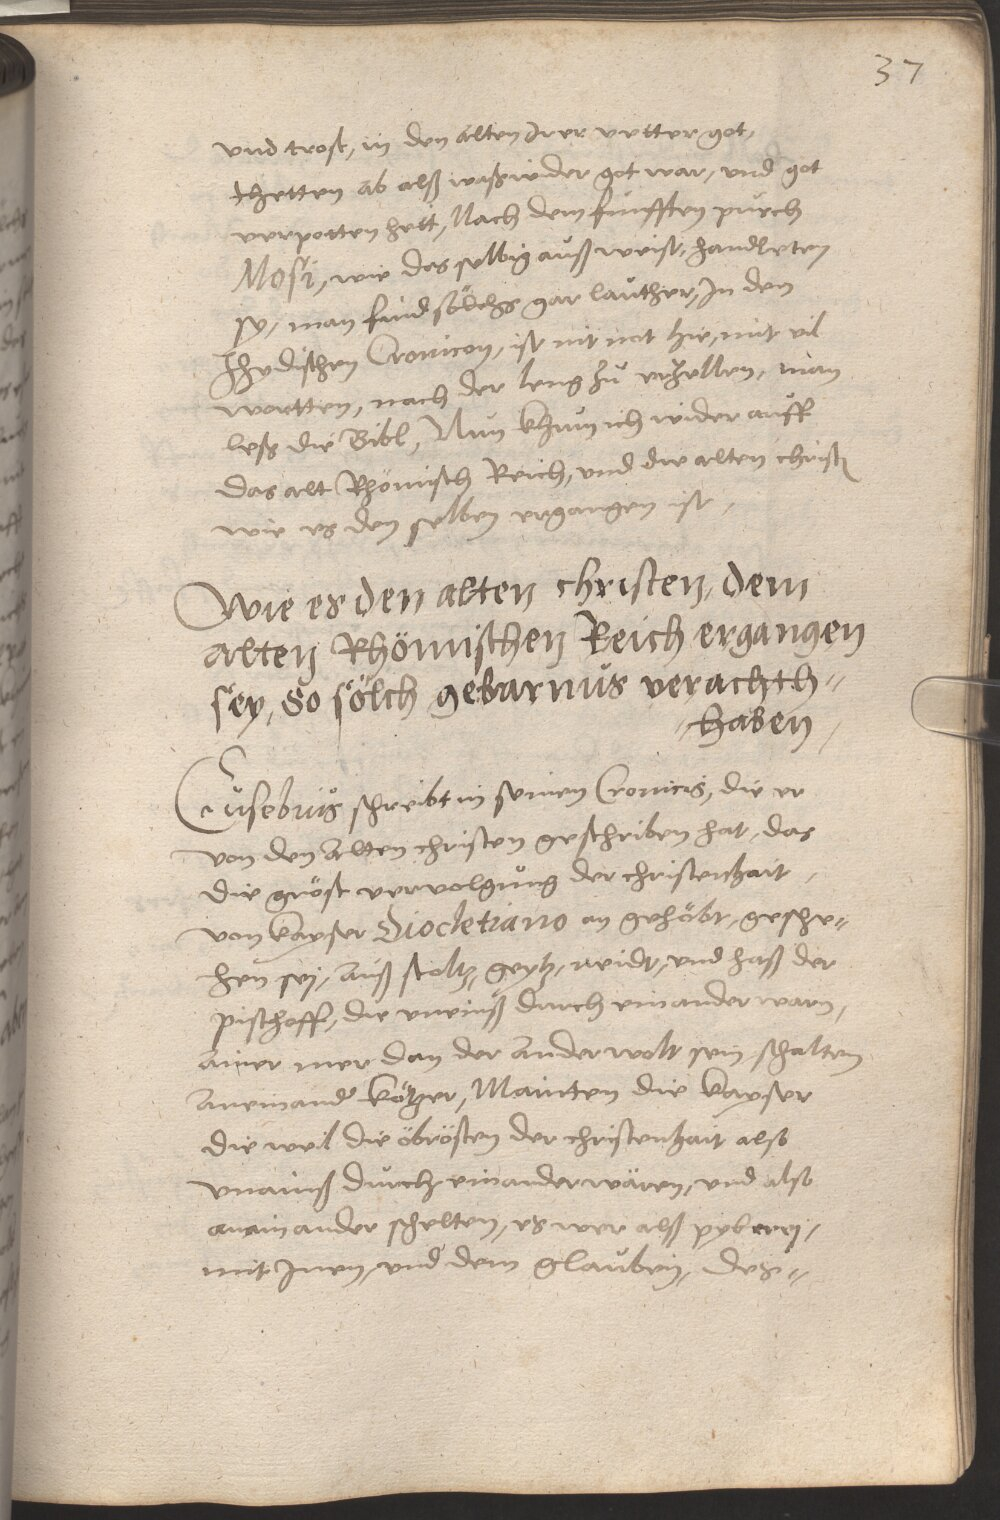 37
vnd trost, in den alten Irer vetter got,
thetten ab alß waß wider got war, vnd got
verpotten hett, Nach dem fünfften püech
Mosi, wie das selbig auß weist, handleten
sy, man find sölchs gar lauther, In den
Jhüdischen Cronicon, ist nit not hie, mit vil
wortten, nach der leng zü erzellen, man
leß die Bibl, Nun khum ich wider auff
das alt Rhömisch Reich, vnd die alten christen
wie es den selben ergangen ist,
Wie es den alten christen, dem
alten Rhömischen Reich ergangen
sey, So sölch gebarnüs verachth=
=haben,
Eusebius schreibt in seinen Cronicis, die er
von den Alten christen geschriben hat, das
die gröst vervolgung der christenhait,
von kayser Diocletiano an gehöbt, gesche=
hen sej, Auß stoltz, geytz, neidt, vnd haß der
pischoff, die vneinß durch einander warn,
Ainer mer dan der Ander wolt sein schalten
Aneinander kötzer, Mainten die kayser
die weil die öbrösten der christenhait also
vnainß durch einander wären, vnd also
anainander schelten, es wer alß pyberej,
mit Inen, vnd dem glauben, des=